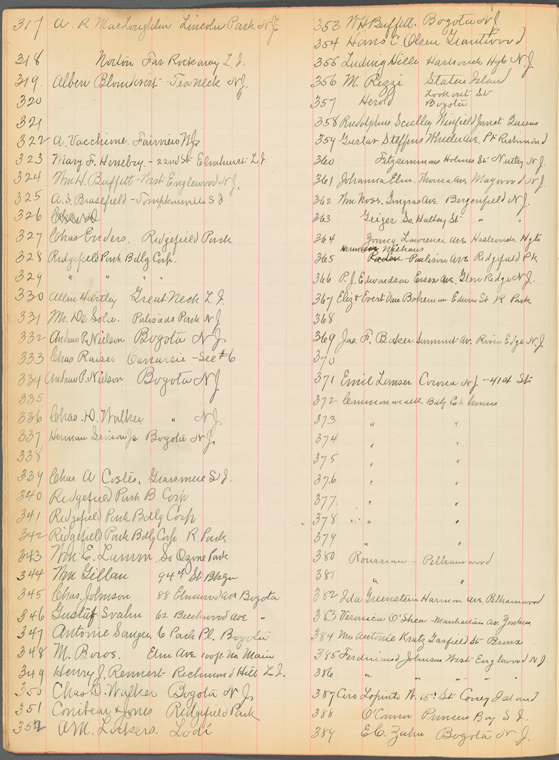 317 A. R. MacLoughlin Lincoln Park N.J.
318 Norton Far Rockaway L.I.
319 Albin Blomkvist - Teaneck N.J.
320
321
322 A. Vacchione Fairview N.J.
323 Mary F. - 22nd St Elmhurst L.I.
324 Wm H. Buffett - West Englewood N.J.
325 A. S. Brasefield - Tompkinsville S.I.
326
327 Chas Enders. Ridgefield Park
328 Ridgefield Park Bdlg Corp.
329 " " "
330 Allen Hartley Great Neck L.I.
331 Mr. De Palisade Park N.J.
332 Andrew P. Nielson Bogota N.J.
333 Chas Raiser Canarsie - See #6
334 Andrew P. Nielson Bogota N.J.
335
336 Chas. D. Walker " N.J.
337 Herman Jr Bogota N.J.
338
339 Chas A Costes, Grasmere S.I.
340 Ridgefield Park B Corp
341 Ridgefield Park Bdlg Corp
342 Ridgefield Park Bdlg Corp R Park
343 Wm E. Lamm So Ozone Park
344 Wm Gillau 94th St Bklyn
345 Chas. Johnson 88 Elmwood Ave Bogota
346 Gustaf Svahn 62 Beechwood Ave "
347 Antonie Sanger 6 Park Pl. Bogota
348 M. Boros. Elm Ave 100 ft No Main
349 Henry J. Rennert Richmond Hill L.I.
350 Chas D. Walker Bogota N.J.
351 Conibear & Jones Ridgefield Park
352 A.M. Lodi
353 W H Buffett. Bogota N.J.
354 Hans C. Olsen Grantwood
355 Ludwig Hille Hasbrouck Hgts N.J.
356 M. Rizzi Staten Island
357 Herold Lookout St Bogota
358 Rudolphine Sculley Winfield Junct Queens
359 Gustav Steffens Wheeler Av. Pt Richmond
360 Fitzsimmons Holmes St Nutley N.J.
361 Johanna Eben Thoma Av. Maywood N.J.
362 Wm Av. Bergenfield N.J.
363 Geiger So. Halley St " "
364 Lawrence Ave Hasbrouck Hgts
365 Hermann Paulison Ave Ridgefield Pk
366 P. J. Edwardson Essex Av. Glen Ridge N.J.
367 Eliz & Evert Van Edwin St R Park
368
369 Jas F. Baker Summit Av. River Edge N.J.
370
371 Emil Corona N.Y. - 41st St
372 Commonwealth Bdlg Co
373 " "
374 " "
375 " "
376 " "
377 " "
378 " "
379 " "
380 Rousseau - Pelhamwood
381 " "
382 Ida Greenstein Harmon Ave. Pelhamwood
383 Veronica O'Shea - Manhattan Av. Yonkers
384 Mr Antonie Kratz Garfield St Bronx
385 Ferdinand Johnson West Englewood N.J.
386 " " " " "
387 Ciro Loparto W. 15th St Coney Island
388 O'Connor Princess Bay S.I.
389 E. C. Zuhn Bogota N.J.